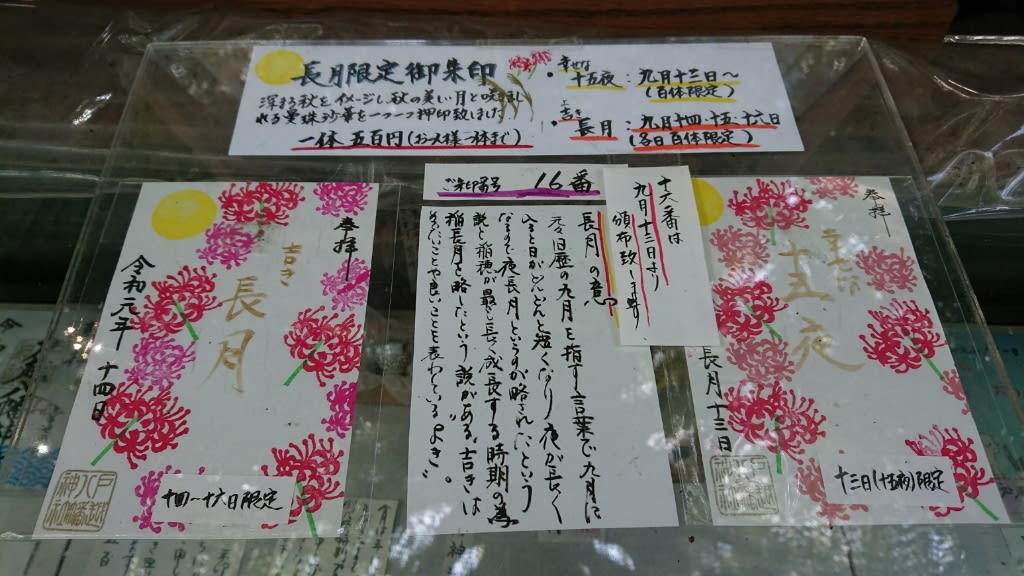 長月限定御朱印
深まる秋をイメージし秋の美しい月と咲乱
れる曼珠沙華を一つ一つ押印致しました
一体五百円(お一人様一体まで)
幸せな
十五夜：九月十三日〜
(百体限定)
吉き
長月：九月十四・十五・十六日
(各日百体限定)
ご朱印番号 16番
十六番は
九月十三日より
頒布致します
奉拝
吉き
長月
令和元年
十四日
十四〜十六日限定
長月の意
旧暦の九月を指す言葉で九月に
入ると日がどんどんと短くなり夜が長く
なる為、夜長月というのが略されたという
説と稲穂が最も長く成長する時期の為
稲長月を略したという説がある、吉きは
よいことや良いことを表わしている
奉拝
幸せな
十五夜
長月十三日
十三日(十五夜)限定